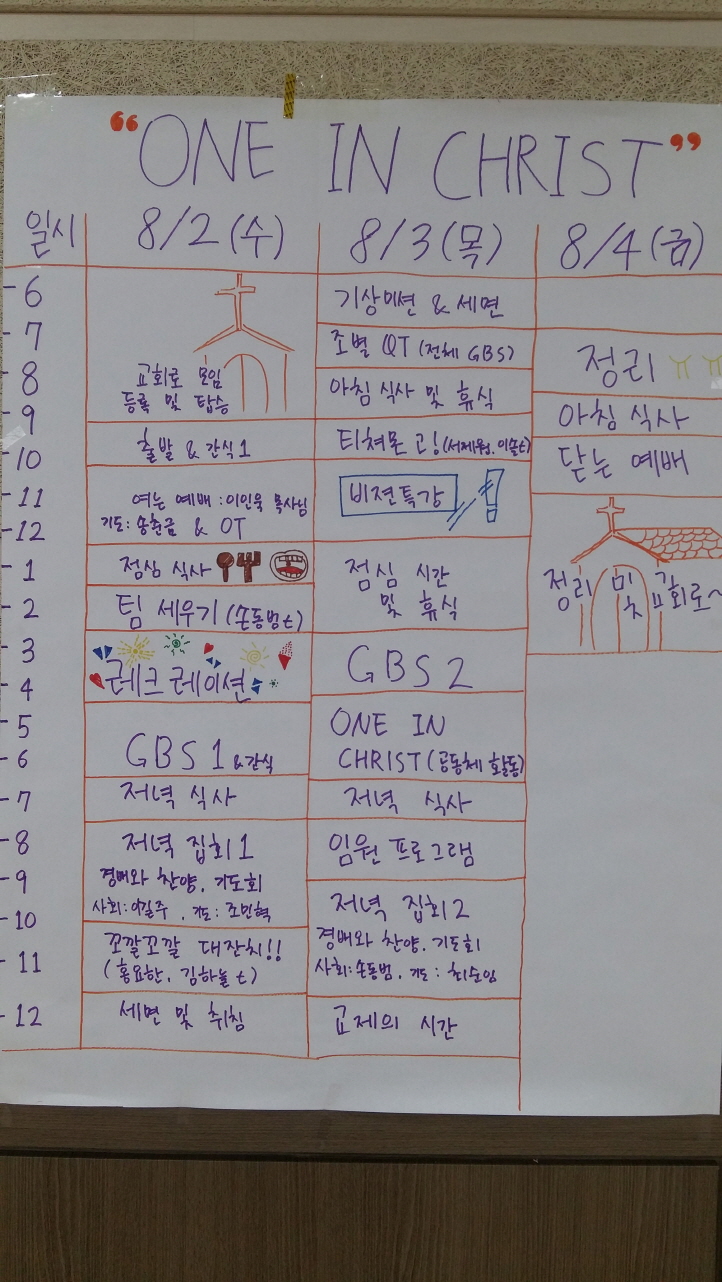 “ONE IN CHRIST”
일시
8/2 (수)
8/3 (목)
8/4 (금)
6
7
8
9
10
11
12
1
2
3
4
5
6
7
8
9
10
11
12
교회로 모임
등록 및 탑승
출발 & 간식 1
여는 예배 : 이인욱 목사님
기도: 송춘금 & OT
점심 식사
팀 세우기 (손동범t)
레크레이션
GBS 1 &간식
저녁 식사
저녁 집회 1
경배와 찬양. 기도회
사회: 이길주 . 기도: 조민혁
꼬깔꼬깔 대잔치!!
(홍요한. 김하늘 t)
세면 및 취침
기상미션 & 세면
조별 QT (전체 GBS)
아침 식사 및 휴식
티쳐몬 고! (서제원. 이슬t)
비전특강
점심 시간
및 휴식
GBS 2
ONE IN
CHRIST (공동체 활동)
저녁 식사
임원 프로그램
저녁 집회 2
경배와 찬양. 기도회
사회: 손동범. 기도: 최순임
교제의 시간
정리
아침 식사
닫는 예배
정리 및 교회로~